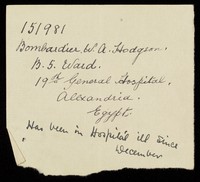 151981
Bombardier. W. A. Hodgson.
B. 5. Ward.
19th General Hospital,
Alexandria.
Egypt.
Has been in Hospital ill since
December